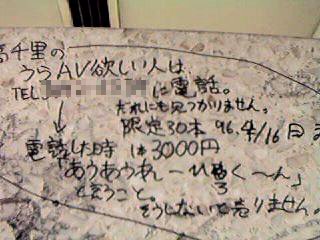 千里の
うらAV欲しい人は
TEL に電話。
だれにも見つかりません。
限定30本 96.4/16日ま
電話した時は3000円
「あうあうあ〜ひろく〜ん」
と言うこと。
そうしないと売りません。